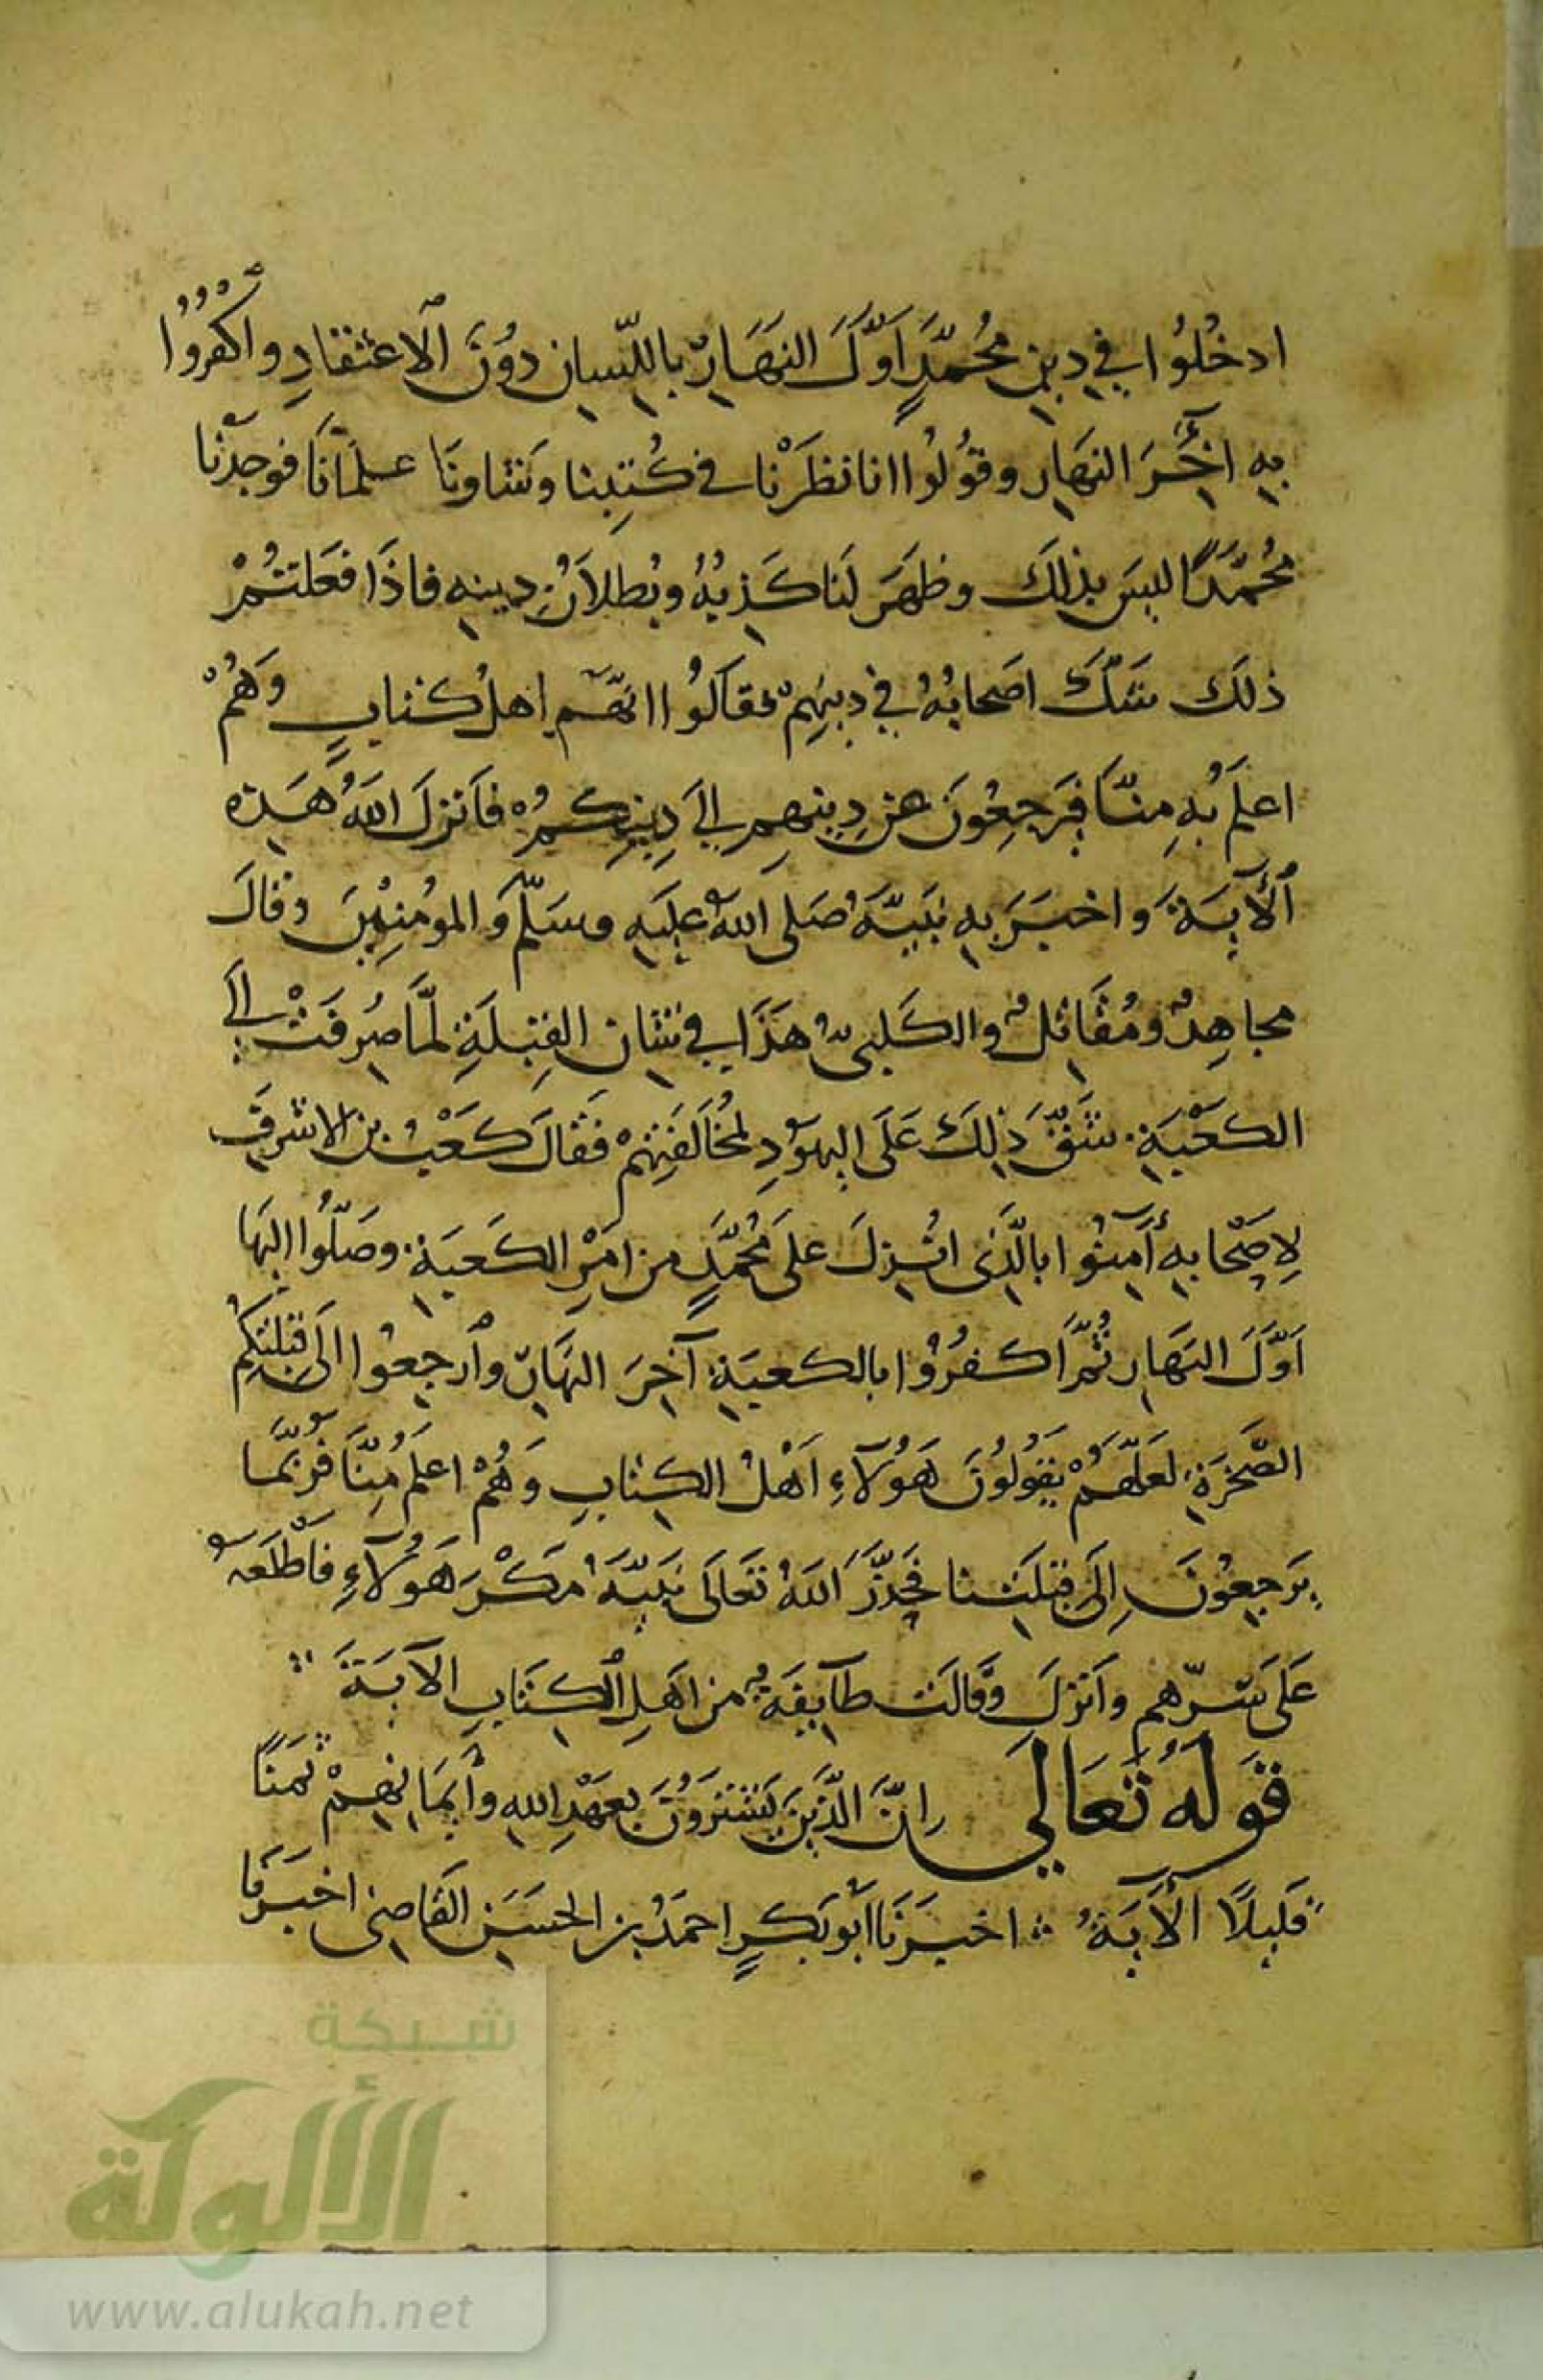 ادخُلُوا في دِينِ مُحُمَّدٍ اَوَّلَ النهَارِ باللِّسانِ دوُنَ الاعتقادِ واكفُرُوُا
بِهِ اخِرَ النهَارِ وقوُلُوا انا نظَرْنا في كُتِبنا وَشاورنَا علمَانَا فوجدْنا
مُحُمَّدًا ليسَ بذلكَ وظهَرَ لَنا كَذِبُهُ وبُطلاَنُ دِينهِ فاذَا فعَلتُمْ
ذلَكَ شَكَّ اصَحابُهُ في دِينِهِمْ فقالَوُا انهَّم اهلُ كتابٍ وَهُمْ
اعلَمُ بهِ مِنّا فيَرجِعُونَ عن دِينِهِم الي دِينِكُمْ فاَنزلَ اللهُ هَذه
الآيةَ وَاخبَرَ بهِ نبَيَّهُ صَلى اللهُ عليَهِ وسَلَّم وَالموُمِنِينَ وقالَ
مجاهِدٌ ومُقَاتلٌ والكَلبىُّ هَذَا في شانِ القِبلَةِ لمَّا صُرِفَتْ الَي
الكعْبَةِ شَقَّ ذَلِكَ عَلَى اليهوَدِ لمُخَالَفَتِهمْ فقَالَ كَعْبُ بن الاشَرفِ
لِاصَحْابهِ آمَنوُا بالَّذى انُزِلَ علىَ مُحُمَّدٍ من امَرِ الكَعبَةِ وصَلُّوا اليهَا
اَوَّلَ النهَارِ ثُمَّ اكفرُوُا بالكعبَةِ آخِرَ النهَارِ وارجعوُا الىَ قبلتِكُم
الصَّخرَةِ لعَلَّهُمْ يَقوُلوُنَ هَوُلآءِ اَهْلُ الكتابِ وَهُمْ اعلَم مِنّاَ فرُبمَّا
يرَجِعُونَ اِلىَ قبلَتنا فحَذَّرَ اللهُ تعَالىَ نبَيَّهُ مَكْرَ هَوُلآءِ فاَطْلَعَهُ
عَلىَ سِرّهم واَنزلَ وَقالَت طآيِفةٌ من اهَلِ الكتَابِ الآيَةَ
قوَلهُ تَعَالي اِنَّ الَّذِينَ يَشترَوُنَ بعَهْدِ اللهِ وأيَمانِهِمْ ثمَنًا
قليلاً الآيَةُ اخبرَنَا ابوُ بكَرٍ احمَدُ بن الحسَنِ القاَضِى اخبَرنَا
شبكة
الألوكة
www.alukah.net